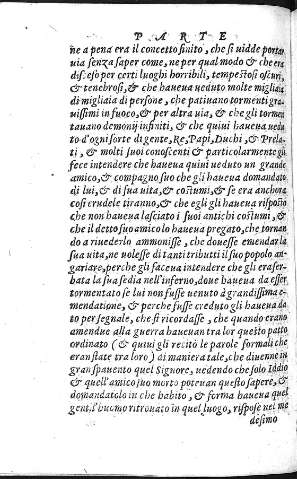 PARTE
ne a pena era il concetto finito, che si uidde portar
uia senza saper come, ne per qual modo & che era
disceso per certi luoghi horribili, tempestosi oscuri,
& tenebrosi, & che haueua ueduto molte migliaia
di migliaia di persone, che patiuano tormenti gra-
uissimi in fuoco, & per altra uia, & che gli tormen
tauano demonij infiniti, & che quiui haueua uedu
to d'ogni sorte di gente, Re, Papi, Duchi, & Prela-
ti, & molti suoi conoscenti & particolarmente gli
fece intendere che haueua quiui ueduto un grande
amico, & compagno suo che gli haueua domandato
di lui, & di sua uita, & costumi, & se era anchora
cosi crudele tiranno, & che egli gli haueua risposto
che non haueua lasciato i suoi antichi costumi, &
che il detto suo amico lo haueua pregato, che tornan
do a riuederlo ammonisse, che douesse emendar la
sua uita, ne uolesse di tanti tributi il suo popolo an-
gariare, perche gli faceua intendere che gli era ser-
bata la sua sedia nell'inferno, doue haueua da esser
tormentato se lui non fusse uenuto à grandissima e-
mendatione, & perche fusse creduto gli haueua da
to per segnale, che si ricordasse, che quando erano
amendue alla guerra haueuan tra lor questo patto
ordinato (& quiui gli recitò le parole formali che
eran state tra loro) di maniera tale, che diuenne in
gran spauento quel Signore, uedendo che solo Iddio
& quell'amico suo morto poteuan questo sapere, &
domandatolo in che habito, & forma haueua quel
gent'l'huomo ritrouato in quel luogo, rispose nel me
desimo